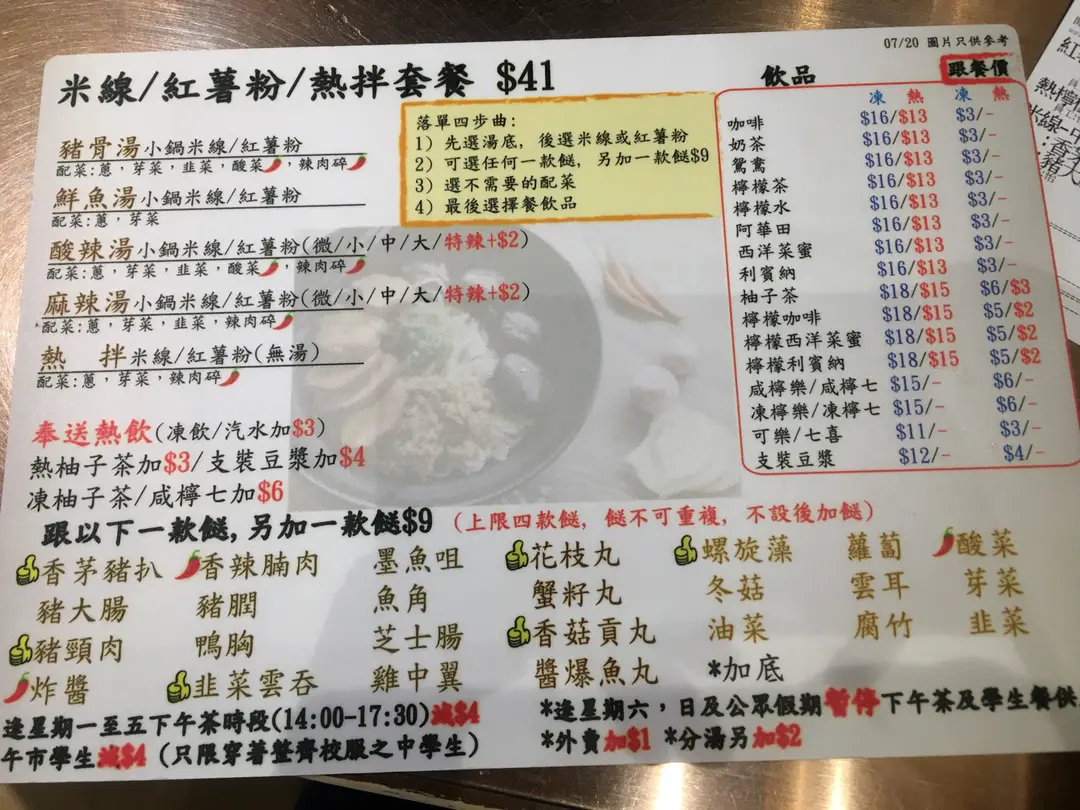 07/20 圖片只供參考
米線/紅薯粉/熱拌套餐 $41
豬骨湯小鍋米線/紅薯粉
配菜:蔥，芽菜，韭菜，酸菜，辣肉碎
鮮魚湯小鍋米線/紅薯粉
配菜:蔥，芽菜
酸辣湯小鍋米線/紅薯粉(微/小/中/大/特辣+$2)
配菜:蔥，芽菜，韭菜，酸菜，辣肉碎
麻辣湯小鍋米線/紅薯粉(微/小/中/大/特辣+$2)
配菜:蔥，芽菜，韭菜，辣肉碎
熱 拌米線/紅薯粉(無湯)
配菜:蔥，芽菜，辣肉碎
落單四步曲:
1) 先選湯底, 後選米線或紅薯粉
2) 可選任何一款餸, 另加一款餸$9
3) 選不需要的配菜
4) 最後選擇餐飲品
飲品 跟餐價
凍 熱 凍 熱
咖啡 $16/$13 $3/-
奶茶 $16/$13 $3/-
鴛鴦 $16/$13 $3/-
檸檬茶 $16/$13 $3/-
檸檬水 $16/$13 $3/-
阿華田 $16/$13 $3/-
西洋菜蜜 $16/$13 $3/-
利賓納 $16/$13 $3/-
柚子茶 $18/$15 $6/$3
檸檬咖啡 $18/$15 $5/$2
檸檬西洋菜蜜 $18/$15 $5/$2
檸檬利賓納 $18/$15 $5/$2
咸檸樂/咸檸七 $15/- $6/-
凍檸樂/凍檸七 $15/- $6/-
可樂/七喜 $11/- $3/-
支裝豆漿 $12/- $4/-
奉送熱飲(凍飲/汽水加$3)
熱柚子茶加$3/支裝豆漿加$4
凍柚子茶/咸檸七加$6
跟以下一款餸,另加一款餸$9 (上限四款餸, 餸不可重複, 不設後加餸)
香茅豬扒 香辣腩肉 墨魚咀 花枝丸 螺旋藻 蘿蔔 酸菜
豬大腸 豬膶 魚角 蟹籽丸 冬菇 雲耳 芽菜
豬頸肉 鴨胸 芝士腸 香菇貢丸 油菜 腐竹 韭菜
炸醬 韭菜雲吞 雞中翼 醬爆魚丸 *加底
逢星期一至五下午茶時段(14:00-17:30)減$4
午市學生減$4 (只限穿著整齊校服之中學生)
*逢星期六，日及公眾假期暫停下午茶及學生餐供
*外賣加$1 *分湯另加$2